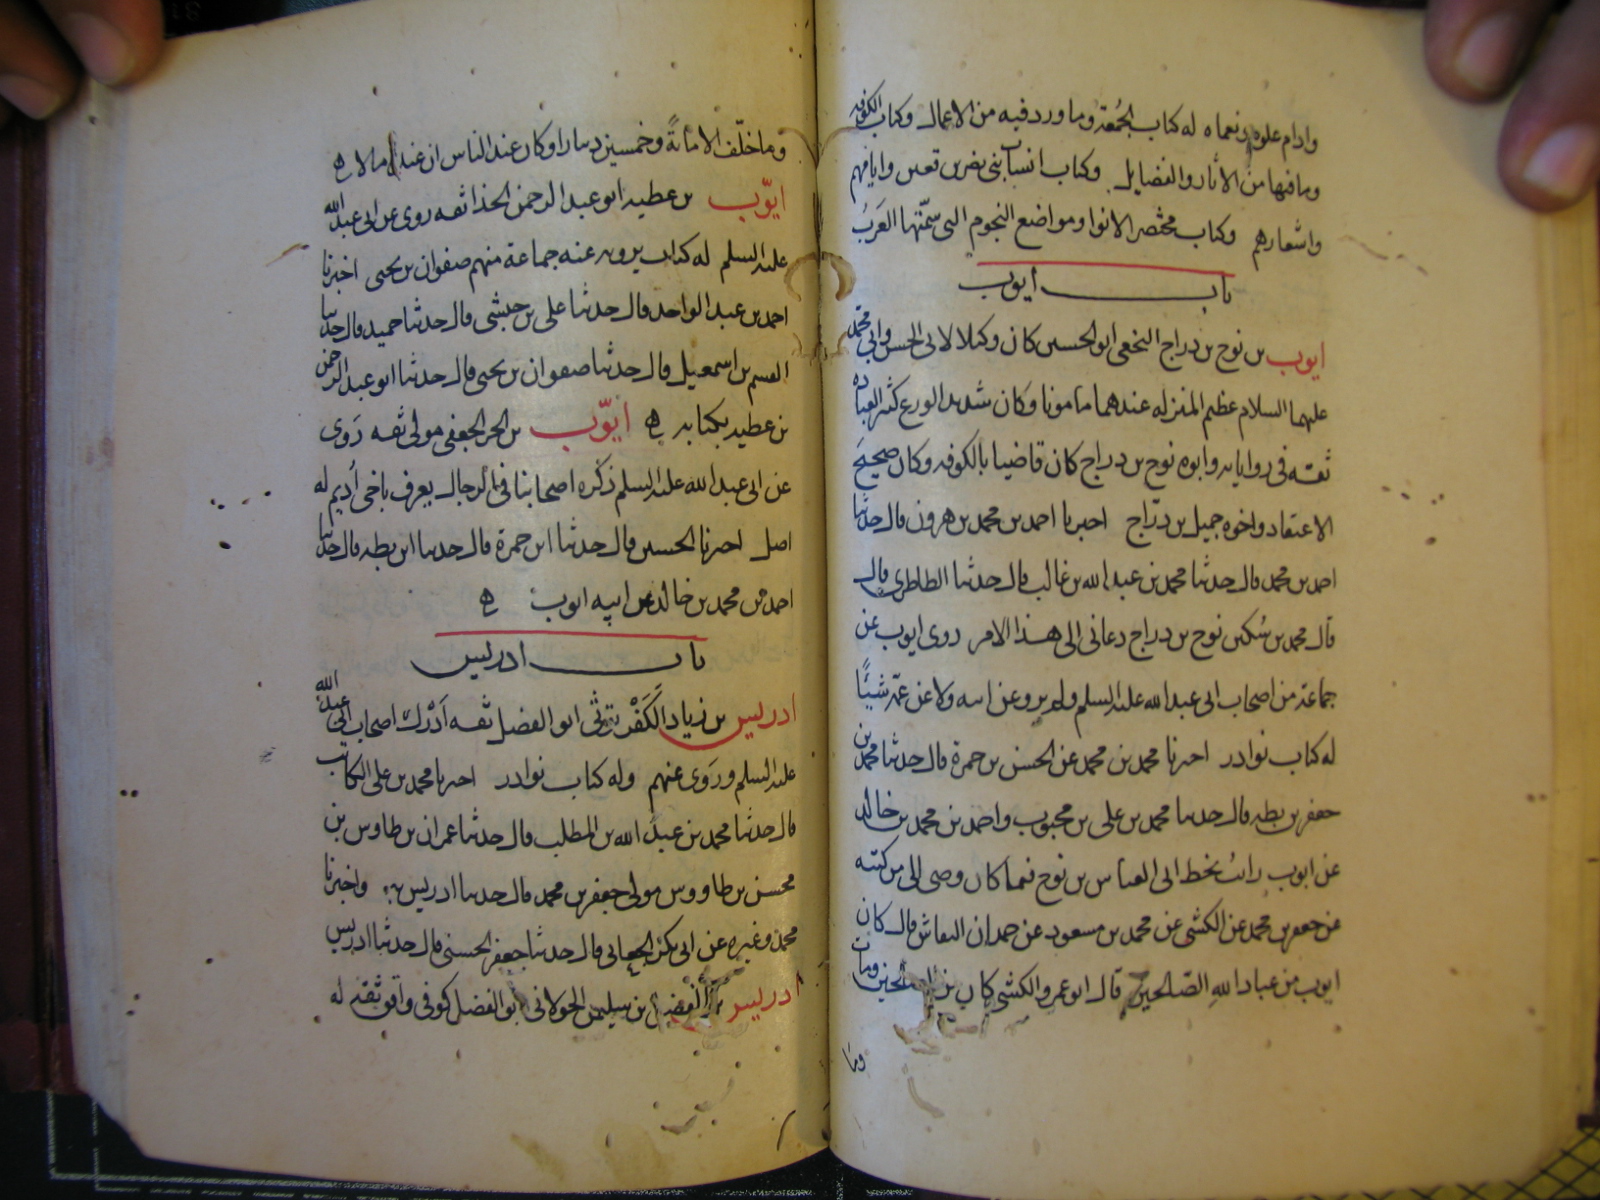 وادام علوه ونعماه له كتاب الجُمعة وما ورد فيه من الاعمال وكتاب الكوفه
وما فيها من الاثار والفضايل وكتاب انساب بنى نضر بن قعين وايامهم
واشعارهم وكتاب مختصر الانوا ومواضع النجوم التى سمّتها العَربُ
باب ايوب
ايوب بن نوح بن دراج النخعى ابو الحسين كان وكيلا لابى الحسن وابى محمد
عليهما السلام عظيم المنزله عندهما مامونا وكان شديد الورع كثير العباده
ثقه فى رواياته وابوه نوح بن دراج كان قاضيا بالكوفه وكان صحيح
الاعتقاد واخوه جميل بن درّاج اخبرنا احمد بن محمد بن هرون قال حدثنا
احمد بن محمد قال حدثنا محمد بن عبد الله بن غالب قال حدثنا الطاطرى قال
قال محمد بن سُكين نوح بن دراج دعانى الى هذا الامر روى ايوب عن
جماعة من اصحاب ابى عبد الله عليه السلم ولم يرو عن ابيه ولا عن عمّه شيئًا
له كتاب نوادر اخبرنا محمد بن محمد عن الحسن بن حمزة قال حدثنا محمد بن
جعفر بن بطه قال حدثنا محمد بن على بن محبوب واحمد بن محمد بن خالد
عن ايوب رايت بخط ابى العباس بن نوح فيما كان وصى الى من كتبه
عن جعفر بن محمد عن الكشى عن محمد بن مسعود عن حمدان النقاش قال كان
ايوب من عباد الله الصّالحين قال ابو عمرو الكشى كان من الصالحين ومات
وما
وما خلّف الا مائةً وخمسين دينارا وكان عند الناس ان عنده مالا ه
ايّوب بن عطيه ابو عبد الرحمن الحذا ثقه روى عن ابى عبد الله
عليه السلم له كتاب يرويه عنه جماعة منهم صفوان بن يحيى اخبرنا
احمد بن عبد الواحد قال حدثنا على بن حبشى قال حدثنا حميد قال حدثنا
القسم بن اسمعيل قال حدثنا صفوان بن يحيى قال حدثنا ابو عبد الرحمن
بن عطيه بكتابه ه ايّوب بن الحر الجعفى مولى ثقه رَوى
عن ابى عبد الله عليه السلم ذكره اصحابنا فى الرجال يعرف باخى اُديم له
اصل اخبرنا الحسين قال حدثنا ابن حمزة قال حدثنا ابن بطه قال حدثنا
احمد بن محمد بن خالد عن ابيه ايوب ه
باب ادريس
ادريس بن زياد الكَفْرتوثى ابو الفضل ثقه اَدْرك اصحاب ابى عبد الله
عليه السلم ورَوى عنهم وله كتاب نوادر اخبرنا محمد بن على الكاتب
قال حدثنا محمد بن عبد الله بن المطلب قال حدثنا عمران بن طاوس بن
محسن بن طاووس مولى جعفر بن محمد قال حدثنا ادريس به واخبرنا
محمد وغيره عن ابى بكر الجعابى قال حدثنا جعفر الحسنى قال حدثنا ادريس
ادريس بن الفضل بن سليمن الخولانى ابو الفضل كوفى واقو ثقه له